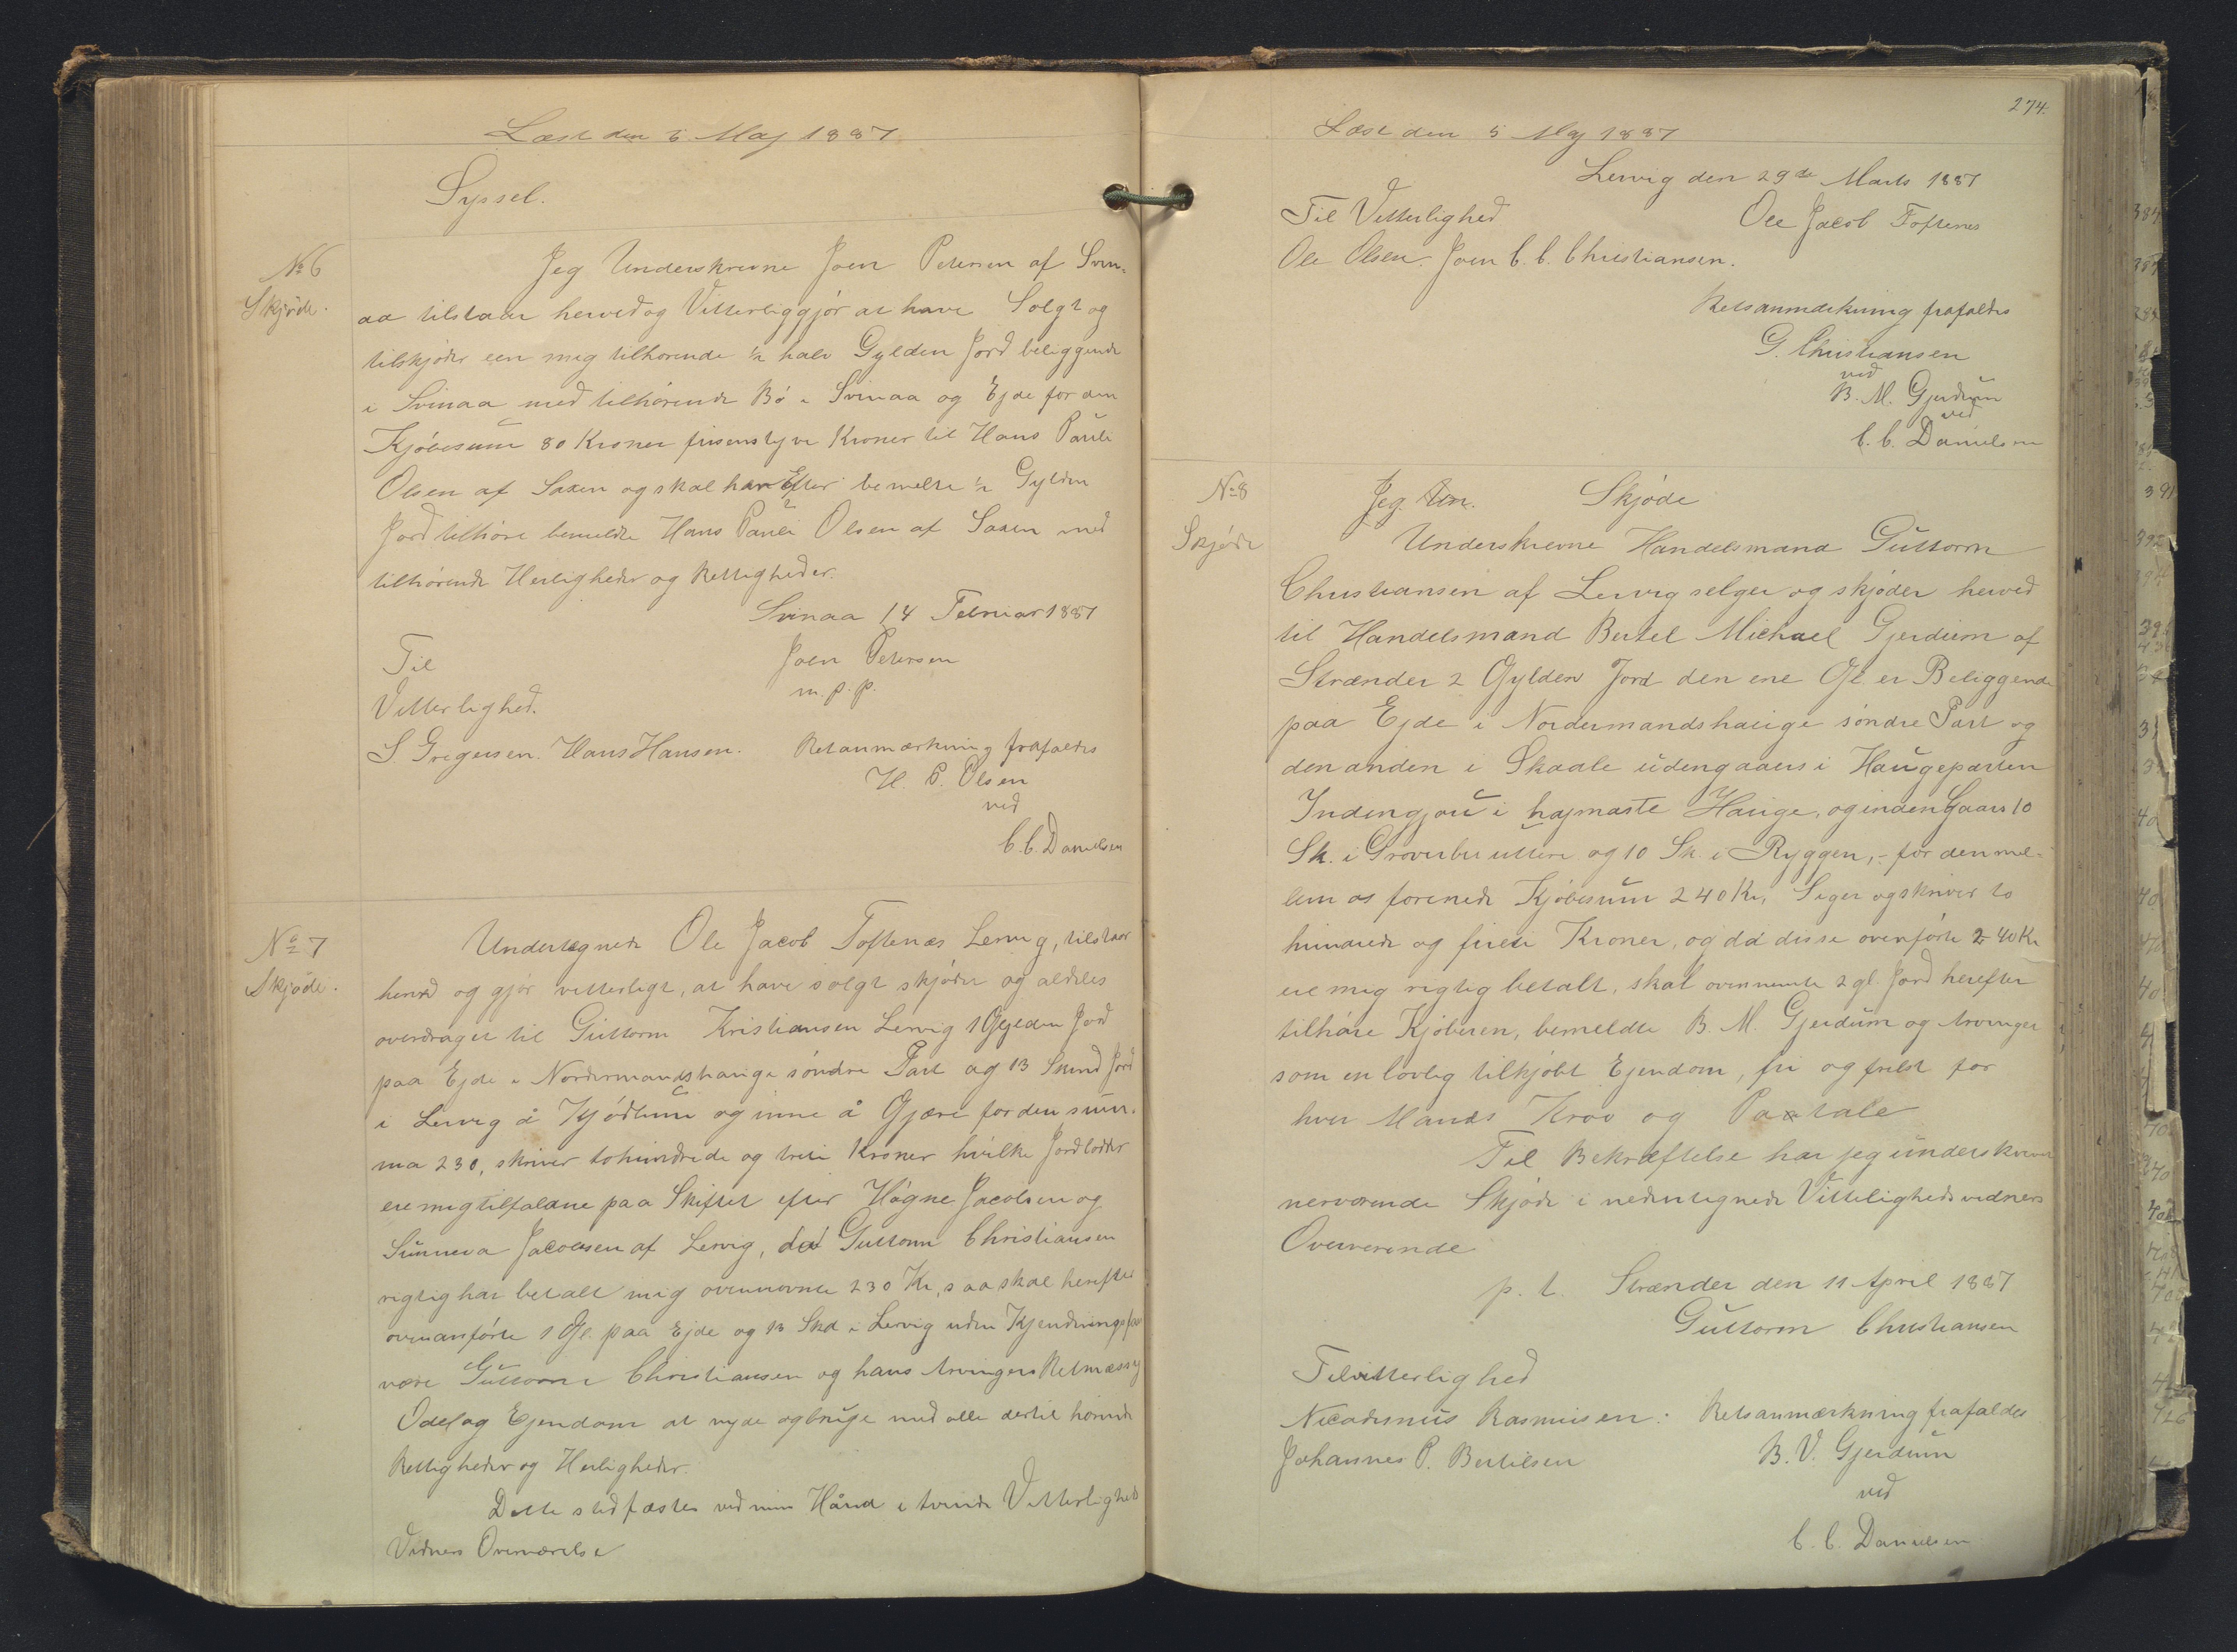 Læst den 5 Maj 1887
Syssel.
No 6
Skjøde.
Jeg Underskrevne Joen Petersen af Svin-
aa tilstaar herved og Vitterliggjör at have Solgt og
tilskjøder een mig tilhorende ½ halv Gylden Jord beliggende
i Svinaa med tilhørende Bö i Svinaa og Ejde for den
Kjøbesum 80 Kroner firsenstyve Kroner til Hans Pauli
Olsen af Saxen og skal her Efter bemelte ½ Gylden
Jord tilhöre bemeldte Hans Pauli Olsen af Saxen med
tilhörende Herligheder og Rettigheder.
Svinaa 14 Februar 1887
Til
Vitterlighed.
Joen Petersen
m. p. p.
S. Gregersen. Hans Hansen.
Retsanmærkning frafaldes
H. P. Olsen
ved
C. C. Danielsen
No 7
Skjöde.
Undertegnede Ole Jacob Toftenæs Lervig, tilstaar
herved og gjör vitterligt, at have solgt skjöder og aldeles
overdraget til Guttorm Kristiansen Lervig 1 Gylden Jord
paa Ejde i Nordermandshauge söndre Part og 13 Skind Jord
i Lervig å Kjödleum og inne å Gjære for den sum-
ma 230, skriver tohundrede og treti Kroner hvilke Jordlodder
ere mig tilfaldne paa Skiftet efter Högne Jacobsen og
Sunneva Jacobsen af Lervig, da Guttorm Christiansen
rigtig har betalt mig ovennevnte 230 Kr, saa skal herefter
ovenanförte 1 Gl. paa Ejde og 13 Skd i Lervig uden Kjendningsfæ
være Guttorm Christiansen og hans Arvingers Retmæssig
Odel og Ejendom at nyde og bruge med alle dertil hörende
Rettigheder og Herligheder.
Dette stedfæstes ved min Hånd i tvende Vitterligheds
Vidners Overværelse
274.
Læst den 5 Maj 1887
Lervig den 29de Marts 1887
Til Vitterlighed
Ole Jacob Toftenes
Ole Olsen. Joen C. C. Christiansen.
Retsanmærkning frafaldes
G. Christiansen
ved
B. M. Gjerdum
ved
C. C. Danielsen
No 8
Skjøde
Jeg Un. Skjøde
Underskrevne Handelsmand Guttorm
Christiansen af Lervig selger og skjøder herved
til Handelsmand Bertel Michael Gjerdum af
Strænder 2 Gylden Jord den ene Gl. er Beliggende
paa Ejde i Nordermandshauge söndre Part og
den anden i Skaale udengaars i Haugeparten
Indengjou i hajmaste Hauge, og inden Gaars 10
Sk. i Groverber uttere og 10 Sk. i Ryggen, - for den mel-
lem os forenede Kjøbesum 240 Kr, Siger og skriver to
hundrede og fireti Kroner, og da disse ovenførte 240 Kr
ere mig rigtig betalt, skal ovennemte 2 gl. Jord herefter
tilhöre Kjøberen, bemeldte B. M. Gjerdum og Arvinger
som en lovlig tilkjöbt Ejendom, fri og frelst for
hver Mands Krav og Paatale
Til Bekræftelse har jeg underskrevet
nerværende Skjøde i nedentegnede Vitterlighedsvidners
Oververende
p. t. Strænder den 11 April 1887
Guttorm Christiansen
Til vitterlighed
Nicodemus Rasmusen:
Johannes P. Bertelsen
Retsanmærkning frafaldes
B. V. Gjerdum
ved
C. C. Danielsen